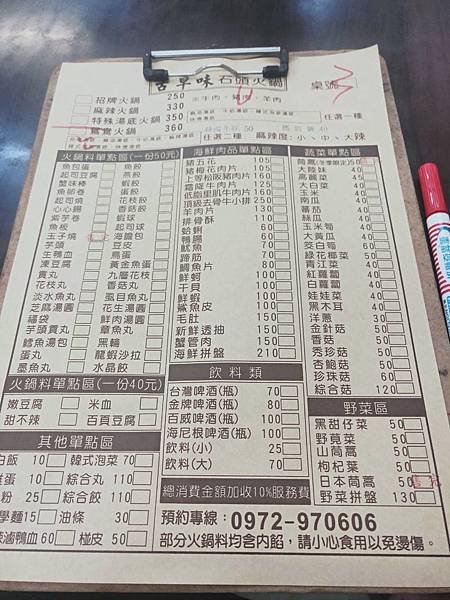 古早味 石頭火鍋
桌號
招牌火鍋 250
麻辣火鍋 330
特殊湯底火鍋 350
鴛鴦火鍋 360
任選一種
任選二種 麻辣度:小、中、大辣
火鍋料單點區(一份50元)
魚包蛋 魚餃
起司豆腐 燕餃
蟹味棒 蝦餃
魚卵卷 蛋餃
起司燒 花枝餃
心心鍋 香菇餃
紫芋卷 蝦球
魚板 起司球
玉子燒 海膽包
芋頭 豆皮
生鴨血 鳥蛋
凍豆腐 黃金魚蛋
貢丸 九層花枝
花枝丸 香菇丸
淡水魚丸 虱目魚丸
芝麻湯圓 花生湯圓
福袋 鮮肉湯圓
芋頭貢丸 章魚丸
鱈魚湯包 黑輪
蛋丸 龍蝦沙拉
墨魚丸 水晶餃
火鍋料單點區(一份40元)
嫩豆腐 米血
甜不辣 百頁豆腐
其他單點區
白飯 10 韓式泡菜 70
雞蛋 10 綜合丸 110
粉 25 綜合餃 110
學麵 15 油條 30
滷鴨血 60 椪皮 50
海鮮肉品單點區
豬五花 105
豬梅花肉片 105
上等松阪豬肉片 165
霜降牛肉片 125
低脂里肌牛肉片 165
頂級去骨牛小排 250
羊肉片 130
排骨酥 110
蛤蜊 60
鴨腸 60
魷魚 50
蹄筋 50
鯛魚片 80
鮮蚵 100
干貝 100
鮮蝦 100
鯊魚皮 100
毛肚 150
新鮮透抽 150
蟹管肉 150
海鮮拼盤 210
飲料類
台灣啤酒(瓶) 70
金牌啤酒(瓶) 80
百威啤酒(瓶) 100
海尼根啤酒(瓶) 100
飲料(小) 25
飲料(大) 70
總消費金額加收10%服務費
蔬菜單點區
茼蒿(冬季限定) 50
大陸妹 40
高麗菜 45
大白菜 40
玉米 40
南瓜 40
蕃茄 40
絲瓜 40
玉米筍 40
大黃瓜 40
茭白筍 60
綠花椰菜 50
青江菜 40
紅蘿蔔 40
白蘿蔔 40
娃娃菜 40
黑木耳 40
洋蔥 30
金針菇 50
香菇 50
秀珍菇 50
杏鮑菇 50
珍珠菇 60
綜合菇 120
野菜區
黑甜仔菜 50
野莧菜 50
山茼蒿 50
枸杞葉 50
日本茼蒿 50
野菜拼盤 130
預約專線:0972-970606
部分火鍋料均含內餡,請小心食用以免燙傷。